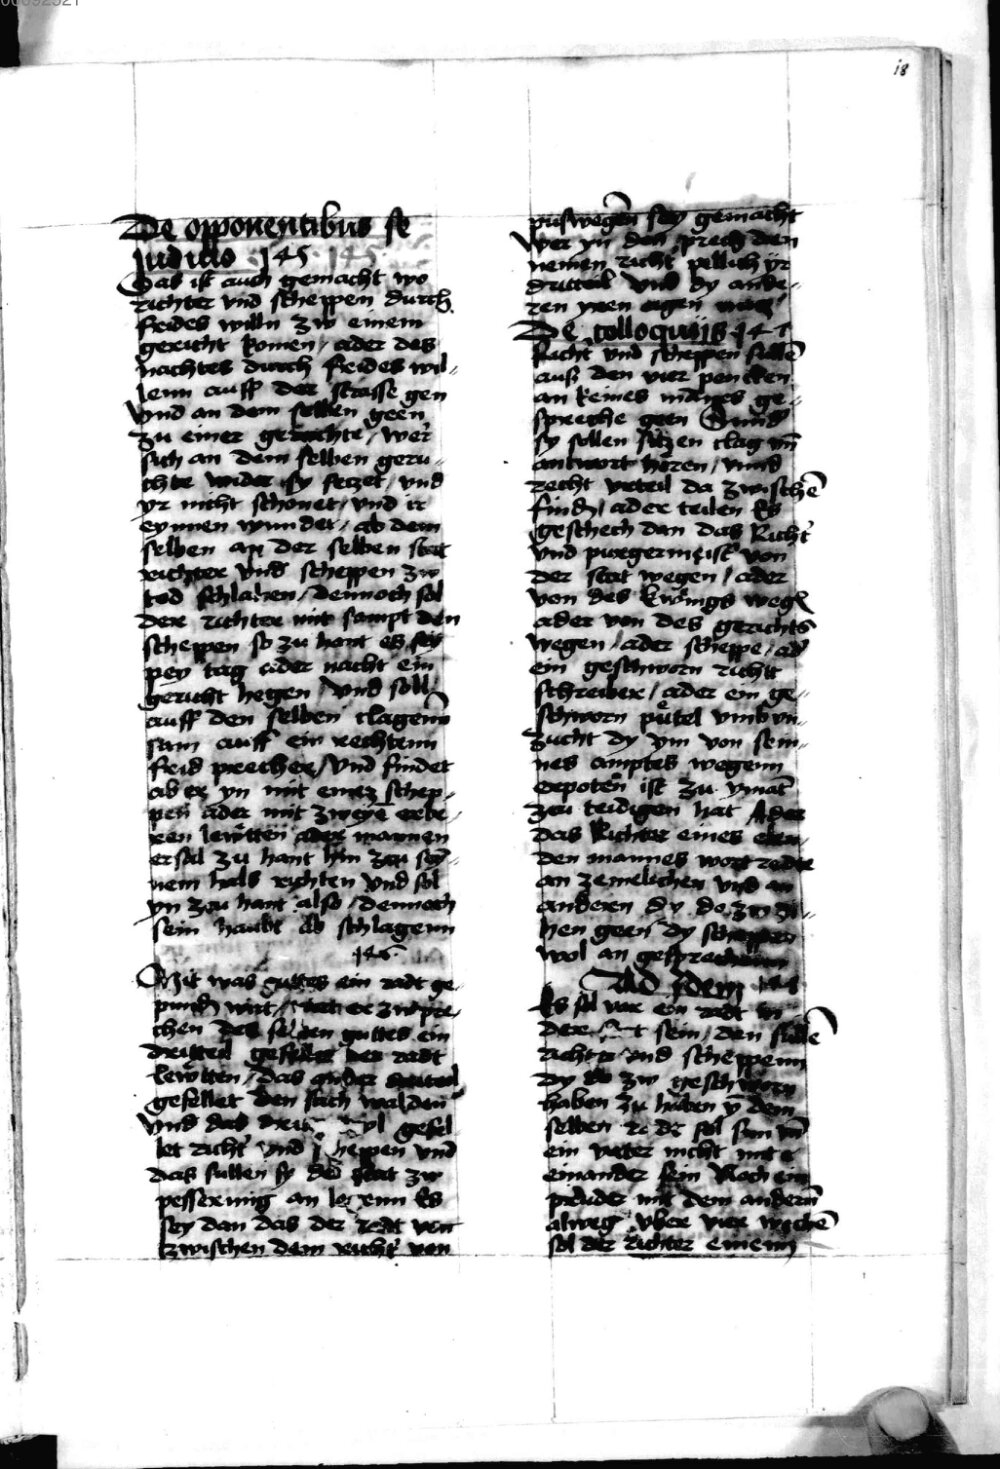 18
De opponentibus se
Judicio 145 145
Das ist auch gemacht wo
richter vnd scheppen durch
freides willn zw einem
gericht komen / ader des
nachtes durch freides wil-
lenn auff der strasse gen
Vnd an dem selben geen
zu einer geruchte / wer
sich an dem selben geru-
chte wider sy seczet / vnd
yr nicht schonet / vnd ir
eynnen wundet / ab dem
selben an der selben stat
richter vnd scheppen zw
tod schlahen / dennoch sol
der richter mit sampt den
scheppen so zu hant es sey
pey tag ader nacht ein
gericht hegen / Vnd soll
auff den selben clagenn
sam auff ein rechtenn
freid precher / Vnd findet
ab er yn mit einez schep-
pen ader mit zweyē erbe-
ren lewtten ader mannen
er sol zu hant hin zcu sey-
nem hals richten vnd sol
yn zcu hant also / dennoch
sein haubt ab schlagenn
146
Mit was guttes ein radt ge-
zw pre-
chen des selben guttes ein
dritteil gefellet der radt
lewtten / das ander dritteil
gefellet den sach walden
Vnd das gefel
let richt' vnd scheppen vnd
das sullen sy der stat zw
pesserung an Es
sey dan das der radt von
zwischen dem richt' von
sey gemacht
wer yn den prech den
nemen richt pillich yr
dritteil Vnd dy ande-
ren yren eigen
De colloquiis 147
Richt vnd scheppen sullē
auß den vier pencken
an keines mannes ge-
spreche geen Sund
sy sollen siczen clag vn̄
antwort horen / vnnd
recht vrteil da zwischē
find / ader teilen Es
geschech dan das Richt'
vnd purgermeist' von
der stat wegen / ader
von des kwnigs weg
ader von des gerichts
wegen / ader scheppe / ad'
ein geschworn richt
schreiber / ader ein ge-
schworn pütel vmb vn-
zucht dy ym von sein-
nes amptes wegenn
enpoten ist zu
zcu teidigen hat Ader
das Richter eines elen-
den mannes wort redte
an zemelichen vnd an
anderen dy do zw
hen geen dy scheppen
wol an gesprechenn
Ad idem 148
Es sol vor ein radt in
der stat sein / den sullē
richter vnd scheppenn
dy do zw geschworn
haben zu haben yn dem
selben rade sol sun vn̄
ein vater nicht mit
einander sein Noch ein
pruder mit dem andern
alweg vber vier wochē
sol der richter einenn